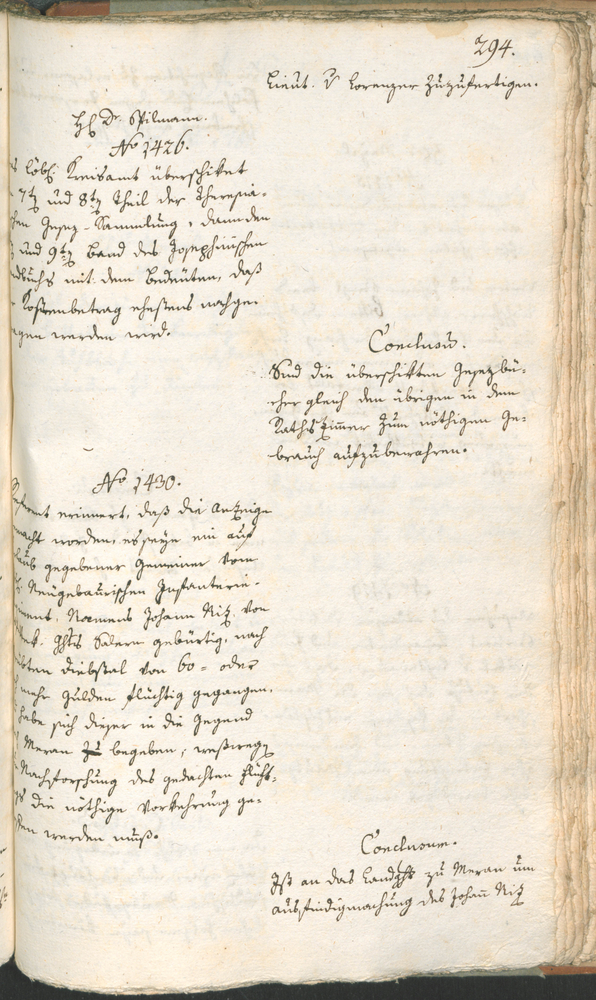 294.
Lieut. v Lorenzer zuzufertigen.
H Dr. Spilmann.
No 1426.
löbl. Kreisamt überschiket
7te und 8te Theil der Theresia-
schen Gesez-Sammlung, dann den
und 9te Band des Josephinischen
ndbuchs mit dem Bedeuten, daß
Kostenbetrag ehestens nachge-
agen werden wird.
Conclusum.
Sind die überschikten Gesezbü-
cher gleich den übrigen in dem
Rathszimmer zum nöthigen Ge-
brauch aufzubewahren.
No 1430.
Referent erinnert, daß die Anzeige
macht worden, es seye ein auf
laub gegebener Gemeiner vom
Neugebaurischen Infanterie-
iment, Namens Johann Niz, von
Ghts Salern gebürtig, nach
übten Diebstal von 60 = oder
mehr Gulden flüchtig gegangen,
habe sich dieser in die Gegend
Meran zu begeben, weßwegen
Nachforschung des gedachten Flücht-
gs die nöthige Vorkehrung ge-
fen werden muß.
Conclusum.
Ist an das Landght zu Meran um
ausfindigmachung des Johann Niz